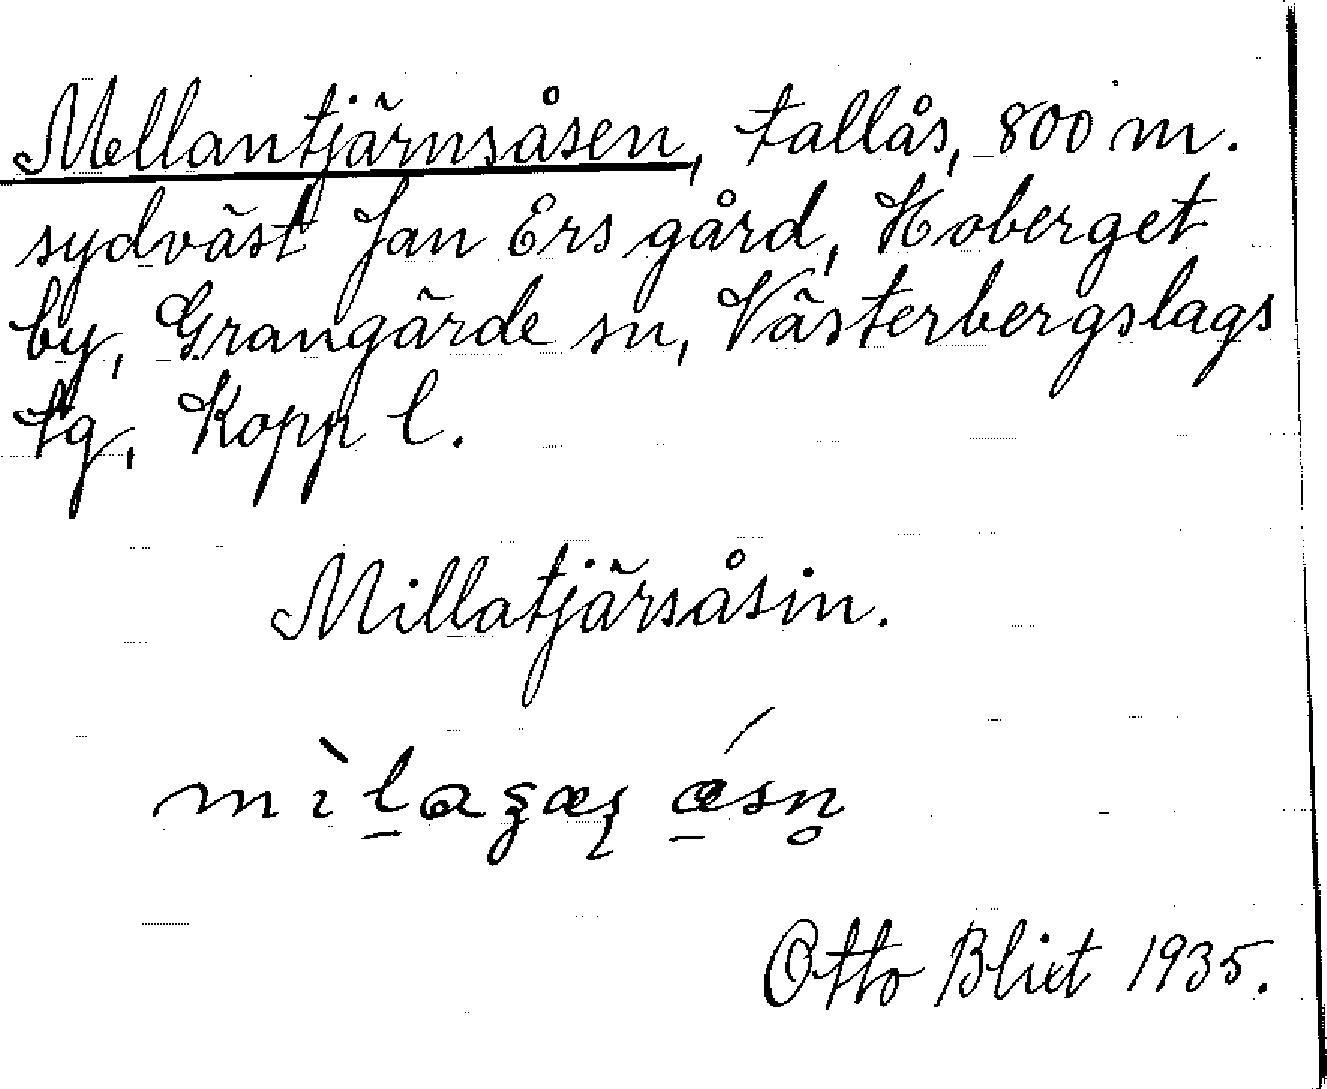 Mellantjärnsåsen, tallås, 800 m.
sydväst Jan Ers gård, Hoberget
by, Grangärde sn, Västerbergslags
tg, Kopp l.
Millatjärsåsin.
Otto Blixt 1935.